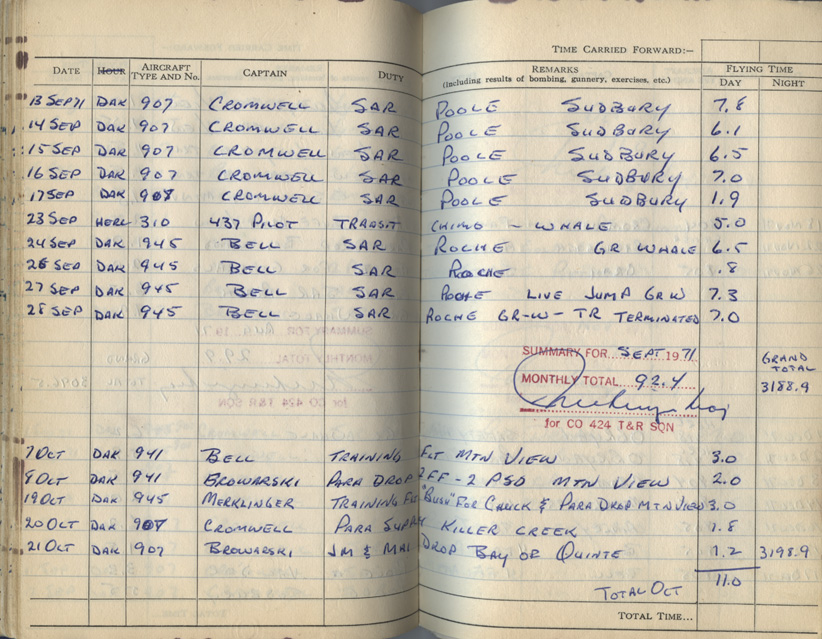 TIME CARRIED FORWARD:–
DATE HOUR AIRCRAFT TYPE AND No. CAPTAIN DUTY REMARKS (Including results of bombing, gunnery, exercises, etc.) FLYING TIME DAY NIGHT
13 SEP 71 DAK 907 CROMWELL SAR POOLE SUDBURY 7.8
14 SEP DAK 907 CROMWELL SAR POOLE SUDBURY 6.1
15 SEP DAK 907 CROMWELL SAR POOLE SUDBURY 6.5
16 SEP DAK 907 CROMWELL SAR POOLE SUDBURY 7.0
17 SEP DAK 907 CROMWELL SAR POOLE SUDBURY 1.9
23 SEP HERC 310 437 PILOT TRANSIT CHIMO - WHALE 5.0
24 SEP DAK 945 BELL SAR ROCHE GR WHALE 6.5
26 SEP DAK 945 BELL SAR ROCHE .8
27 SEP DAK 945 BELL SAR ROCHE LIVE JUMP GR W 7.3
28 SEP DAK 945 BELL SAR ROCHE GR-W-TR TERMINATED 7.0
SUMMARY FOR SEPT 1971
MONTHLY TOTAL 92.4
for CO 424 T&R SQN
GRAND TOTAL
3188.9
7 OCT DAK 941 BELL TRAINING FLT MTN VIEW 3.0
8 OCT DAK 941 BROWARSKI PARA DROP 2FF-2 PSD MTN VIEW 2.0
19 OCT DAK 945 MERKLINGER TRAINING FLT "BUSH" FOR CHUCK & PARA DROP MTN VIEW 3.0
20 OCT DAK 907 CROMWELL PARA SUPPLY KILLER CREEK 1.8
21 OCT DAK 907 BROWARSKI JM & MAI DROP BAY OF QUINTE 1.2 3198.9
TOTAL OCT 11.0
TOTAL TIME...